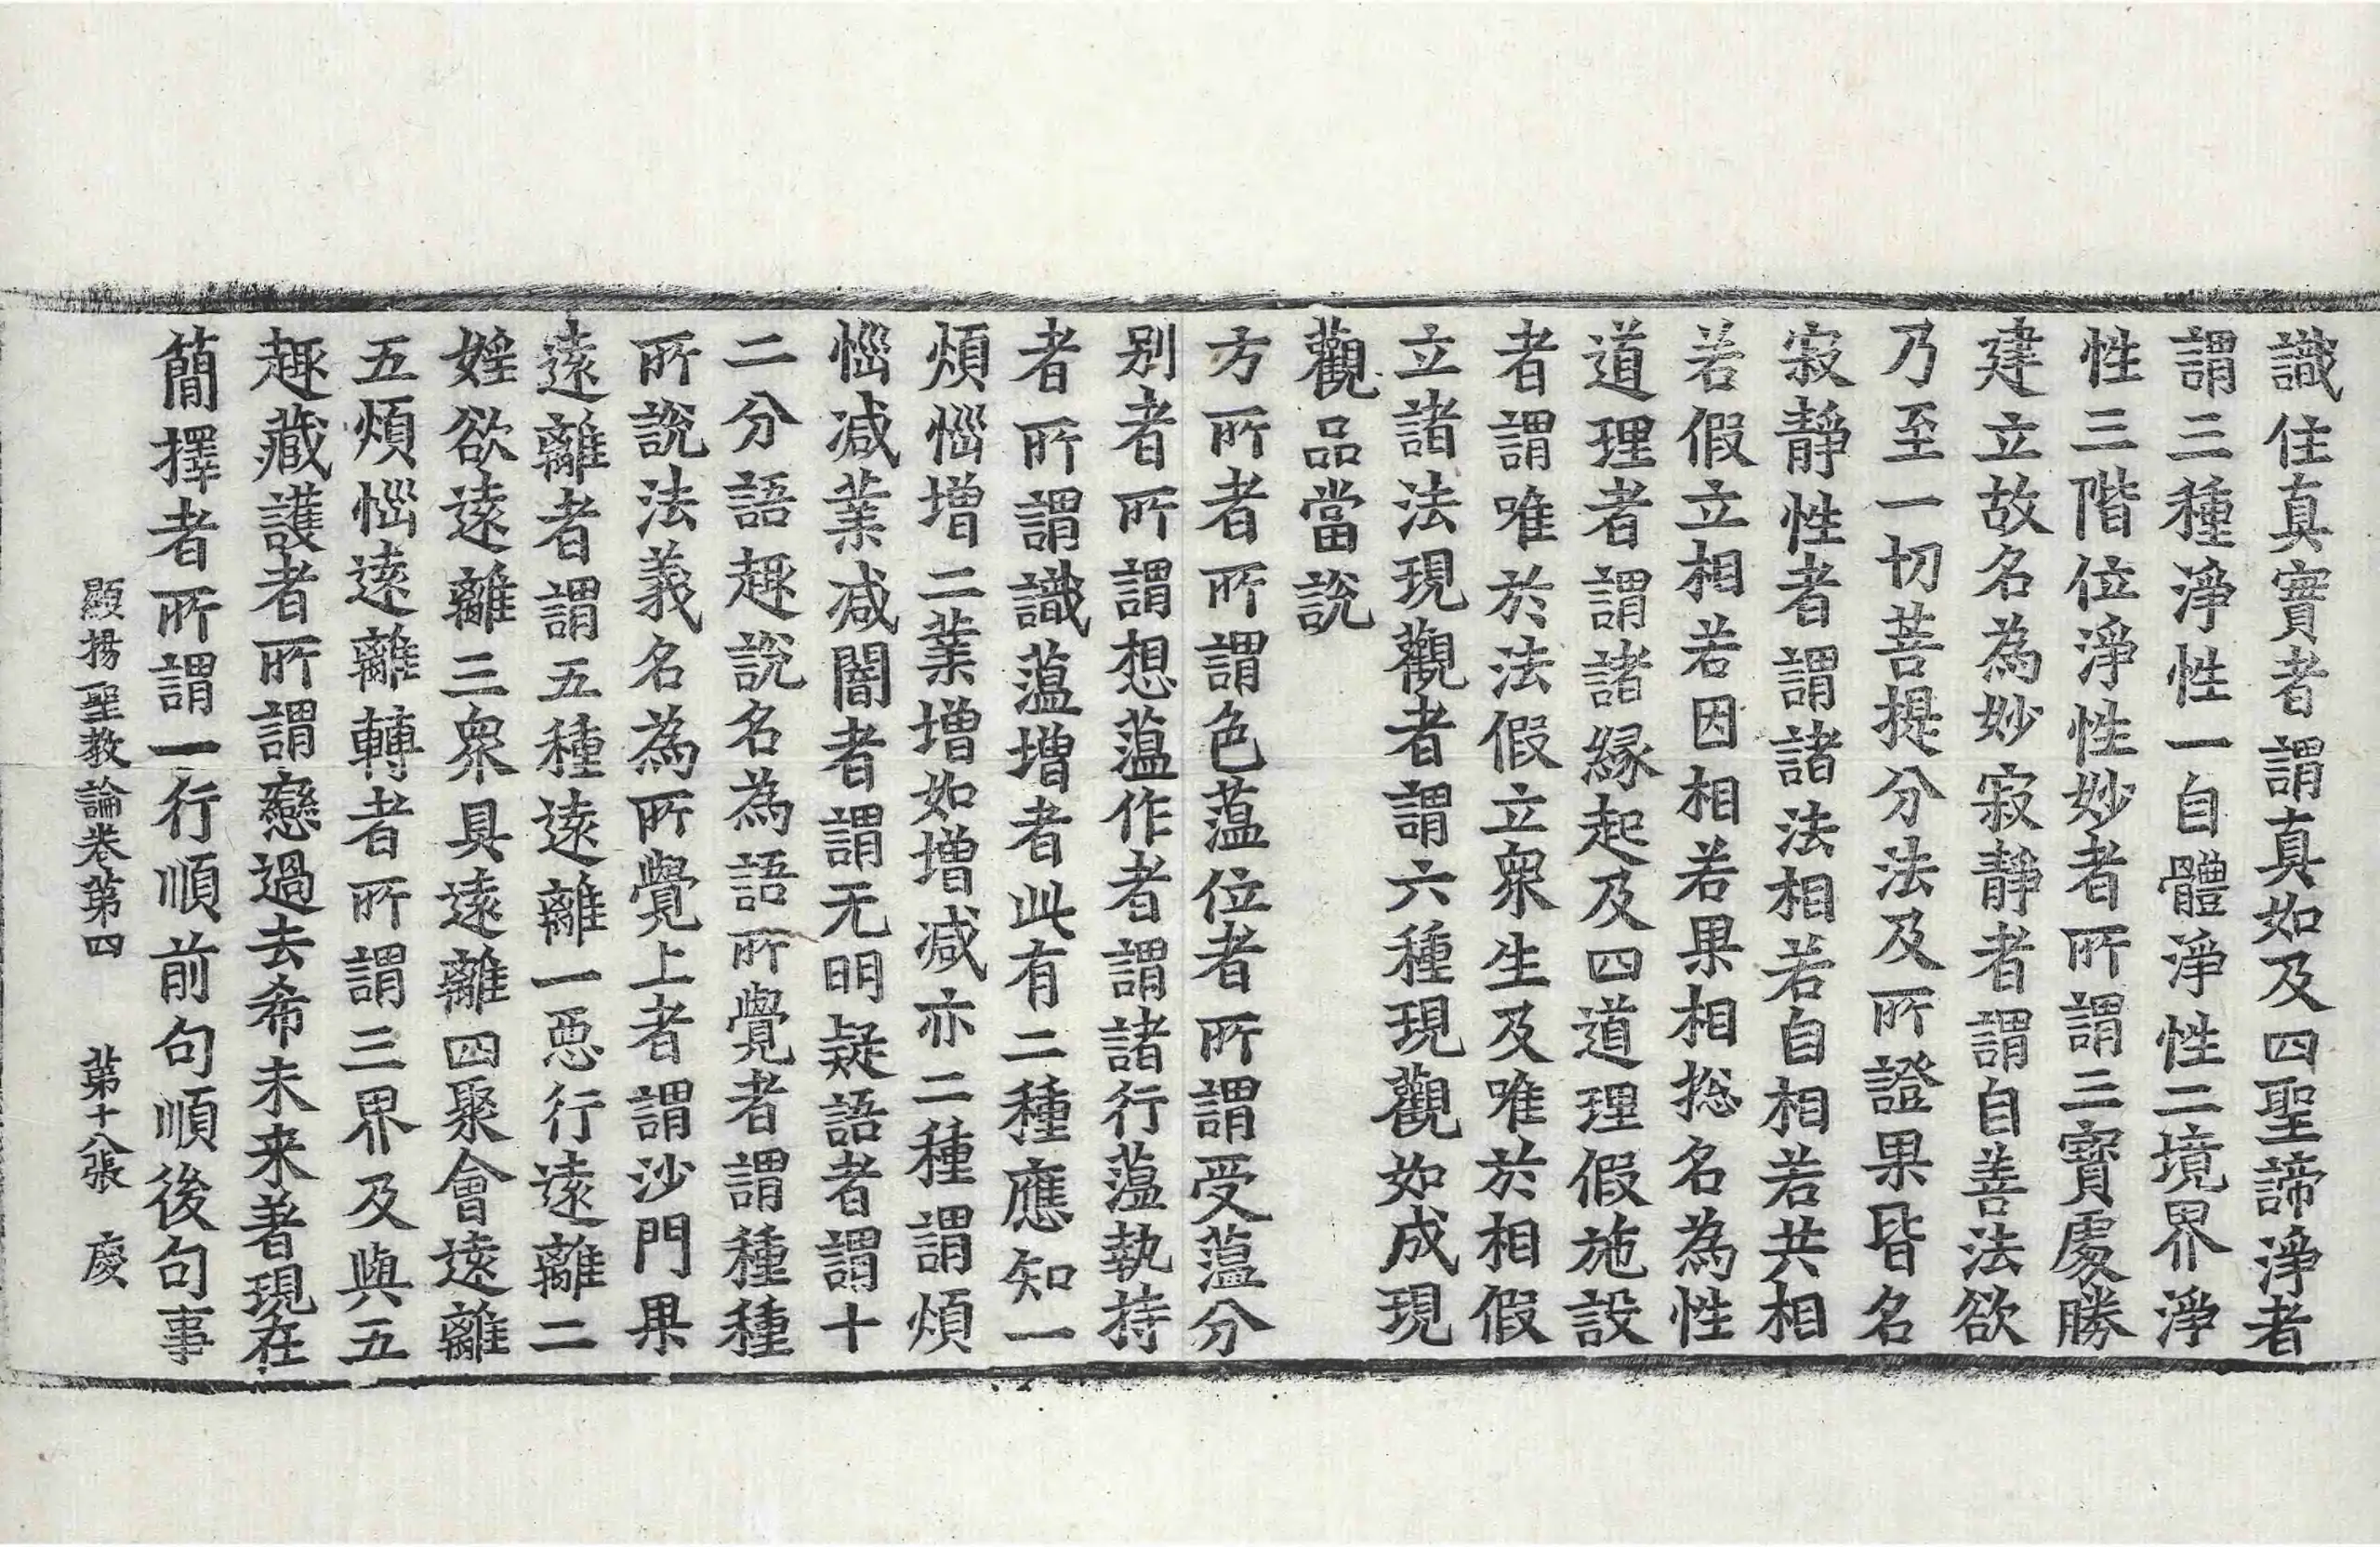 識住真實者謂真如及四聖諦淨者
謂三種淨性一自體淨性二境界淨
性三階位淨性妙者所謂三寳處勝
建立故名為妙寂靜者謂自善法欲
乃至一切菩提分法及所證果皆名
寂靜性者謂諸法相若自相若共相
若假立相若因相若果相捴名為性
道理者謂諸縁起及四道理假施設
者謂唯於法假立衆生及唯於相假
立諸法現觀者謂六種現觀如成現
觀品當說
方所者所謂色薀位者所謂受薀分
别者所謂想薀作者謂諸行薀執持
者所謂識薀増者此有二種應知一
煩惱増二業増如増减亦二種謂煩
惱减業减闇者謂无明疑語者謂十
二分語趣說名為語所覺者謂種種
所說法義名為所覺上者謂沙門果
遠離者謂五種遠離一惡行遠離二
婬欲遠離三衆具遠離四聚會遠離
五煩惱遠離轉者所謂三界及與五
趣藏護者所謂戀過去希未来著現在
簡擇者所謂一行順前句順後句事
顯揚聖教論卷第四　第十八張　慶